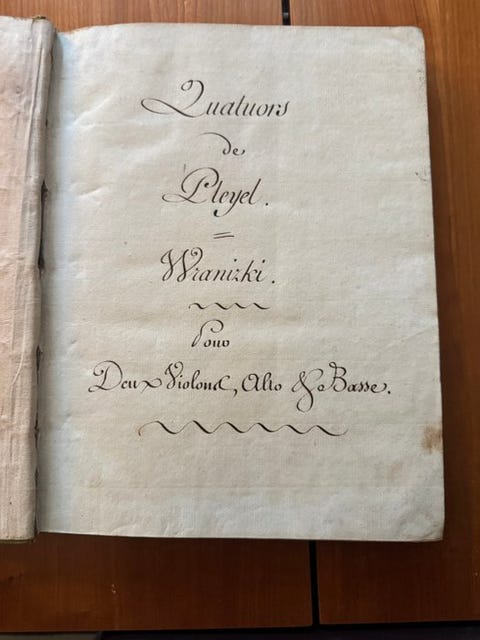 Quatuors
de
Pleyel.
=
Wranizki.
Pour
Deux Violons, Alto & Basse.